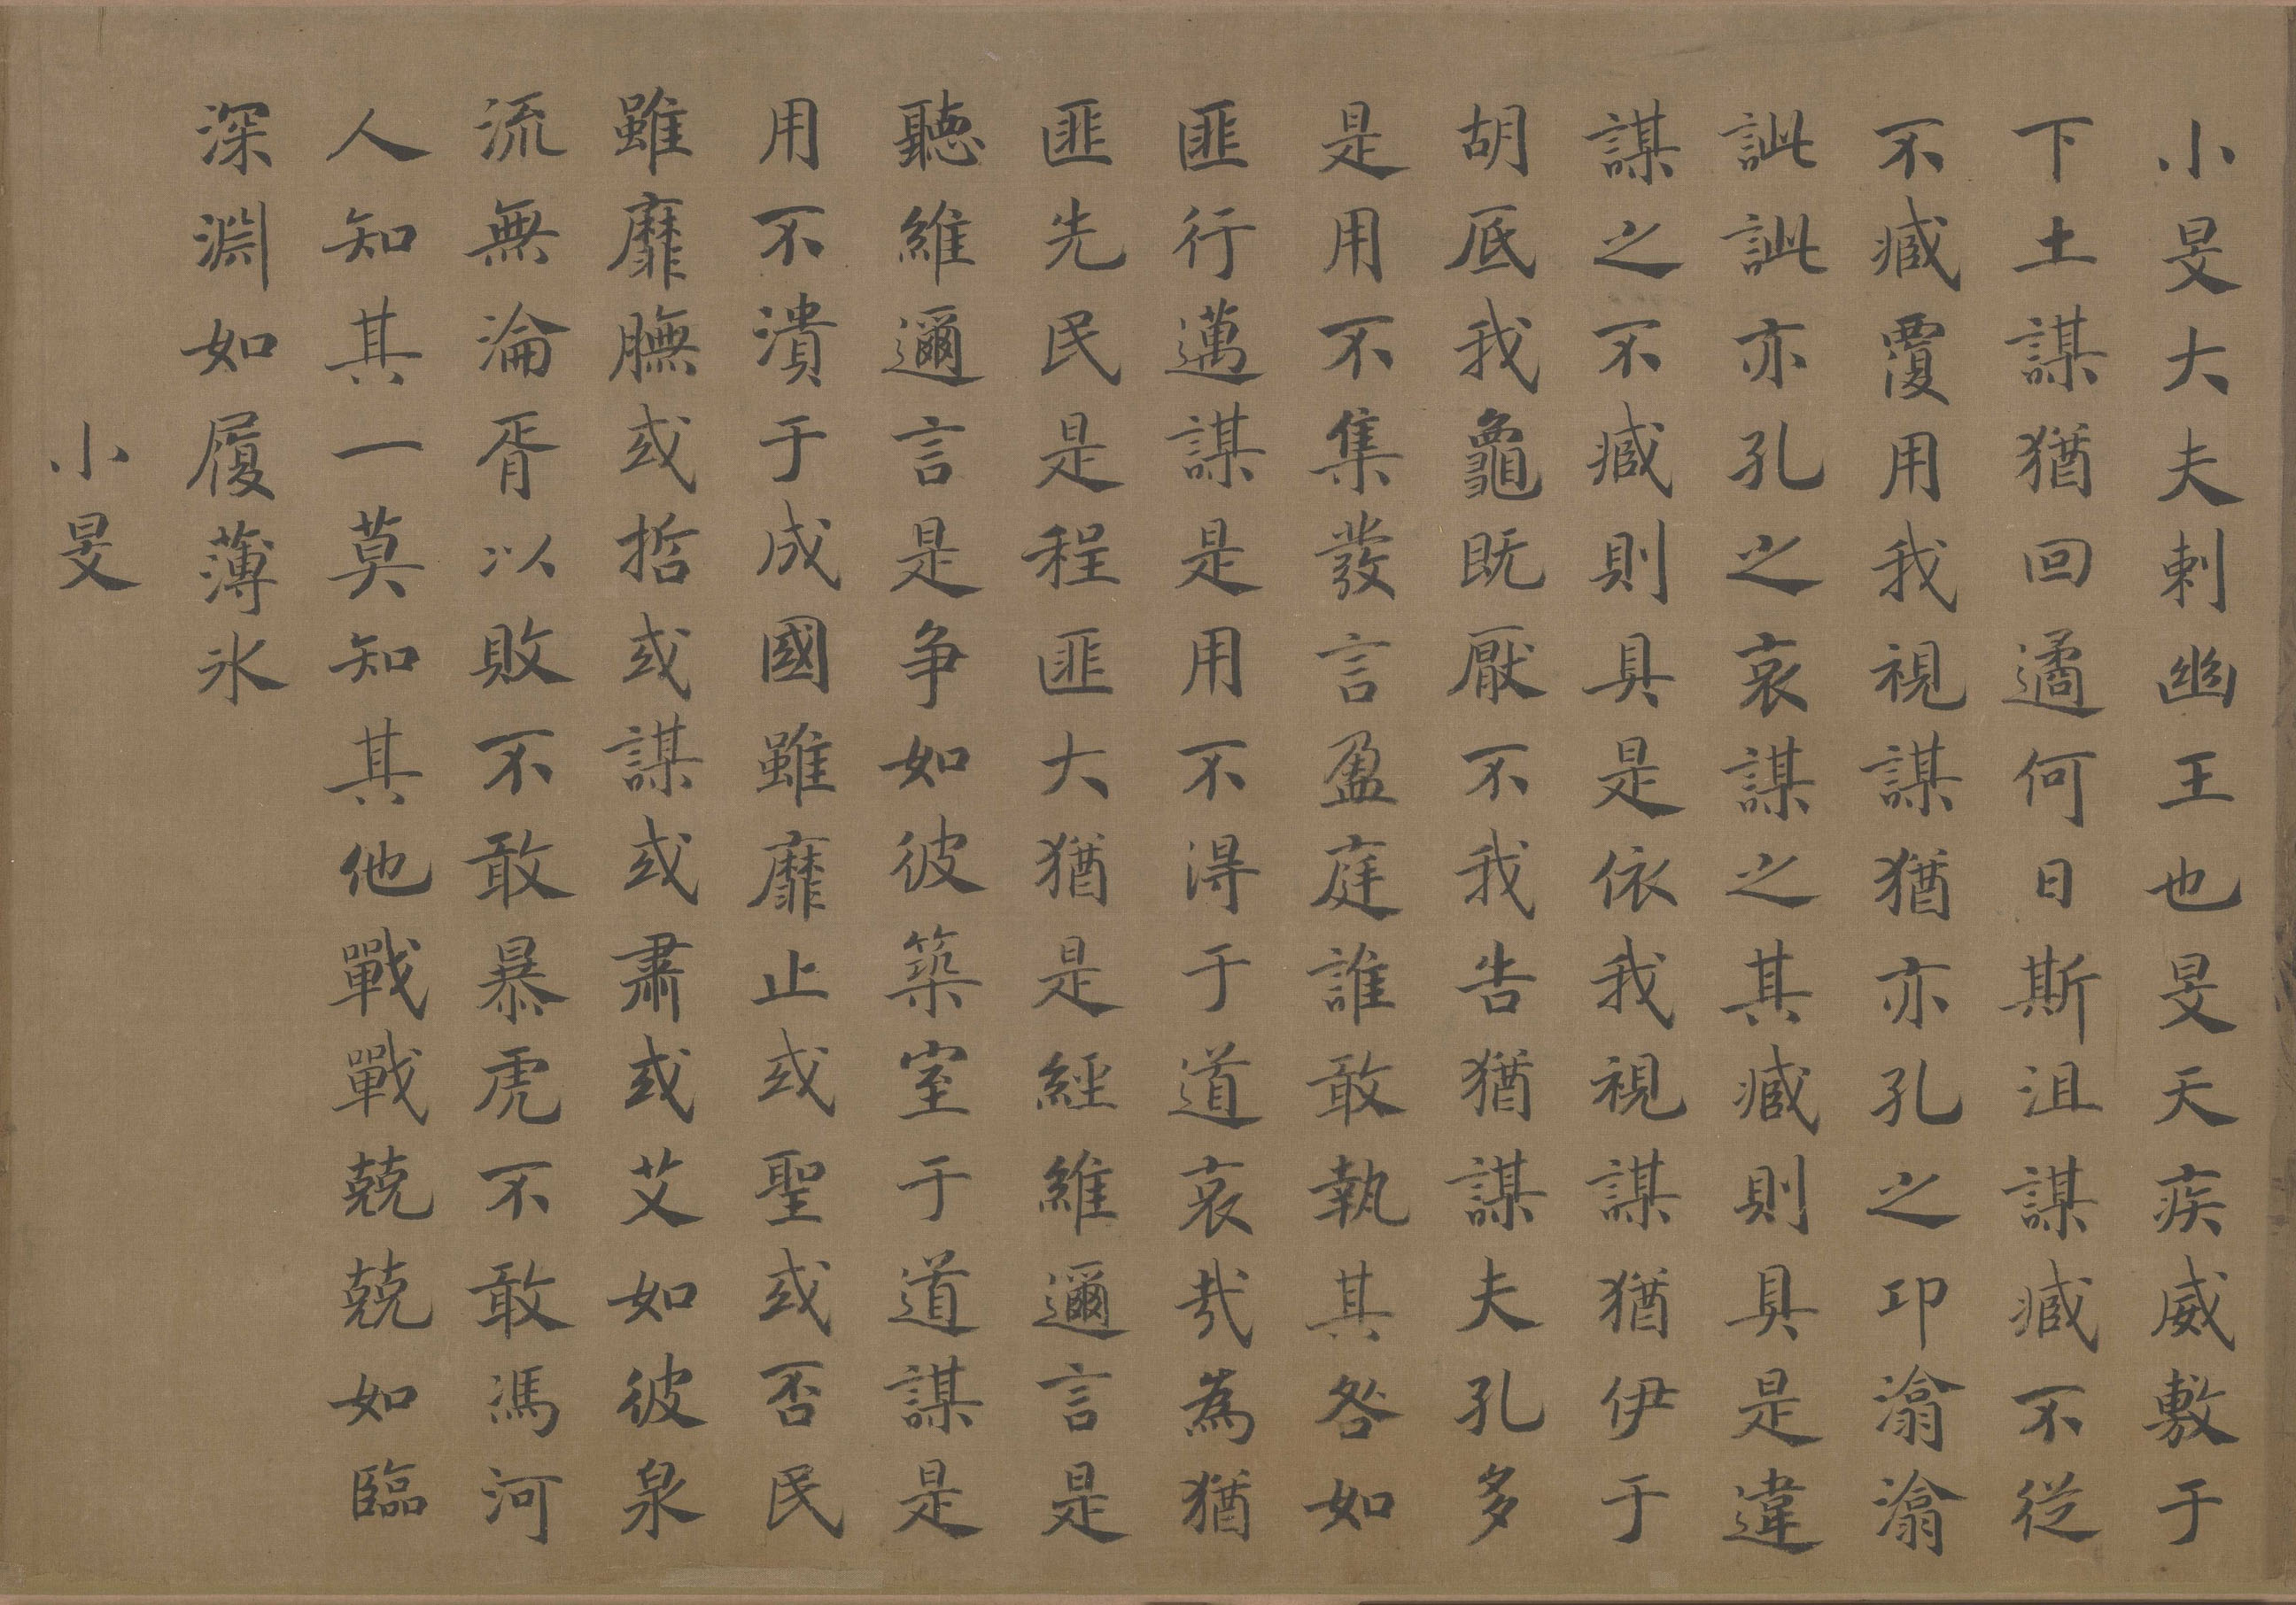 小旻大夫刺幽王也旻天疾威敷于
下土謀猶回遹何日斯沮謀臧不從
不臧覆用我視謀猶亦孔之卭潝潝
訿訿亦孔之哀謀之其臧則具是違
謀之不臧則具是依我視謀猶伊于
胡厎我龜既厭不我告猶謀夫孔多
是用不集發言盈庭誰敢執其咎如
匪行邁謀是用不得于道哀哉為猶
匪先民是程匪大猶是經維邇言是
聽維邇言是爭如彼築室于道謀是
用不潰于成國雖靡止或聖或否民
雖靡膴或哲或謀或肅或艾如彼泉
流無淪胥以敗不敢暴虎不敢馮河
人知其一莫知其他戰戰兢兢如臨
深淵如履薄冰
小旻